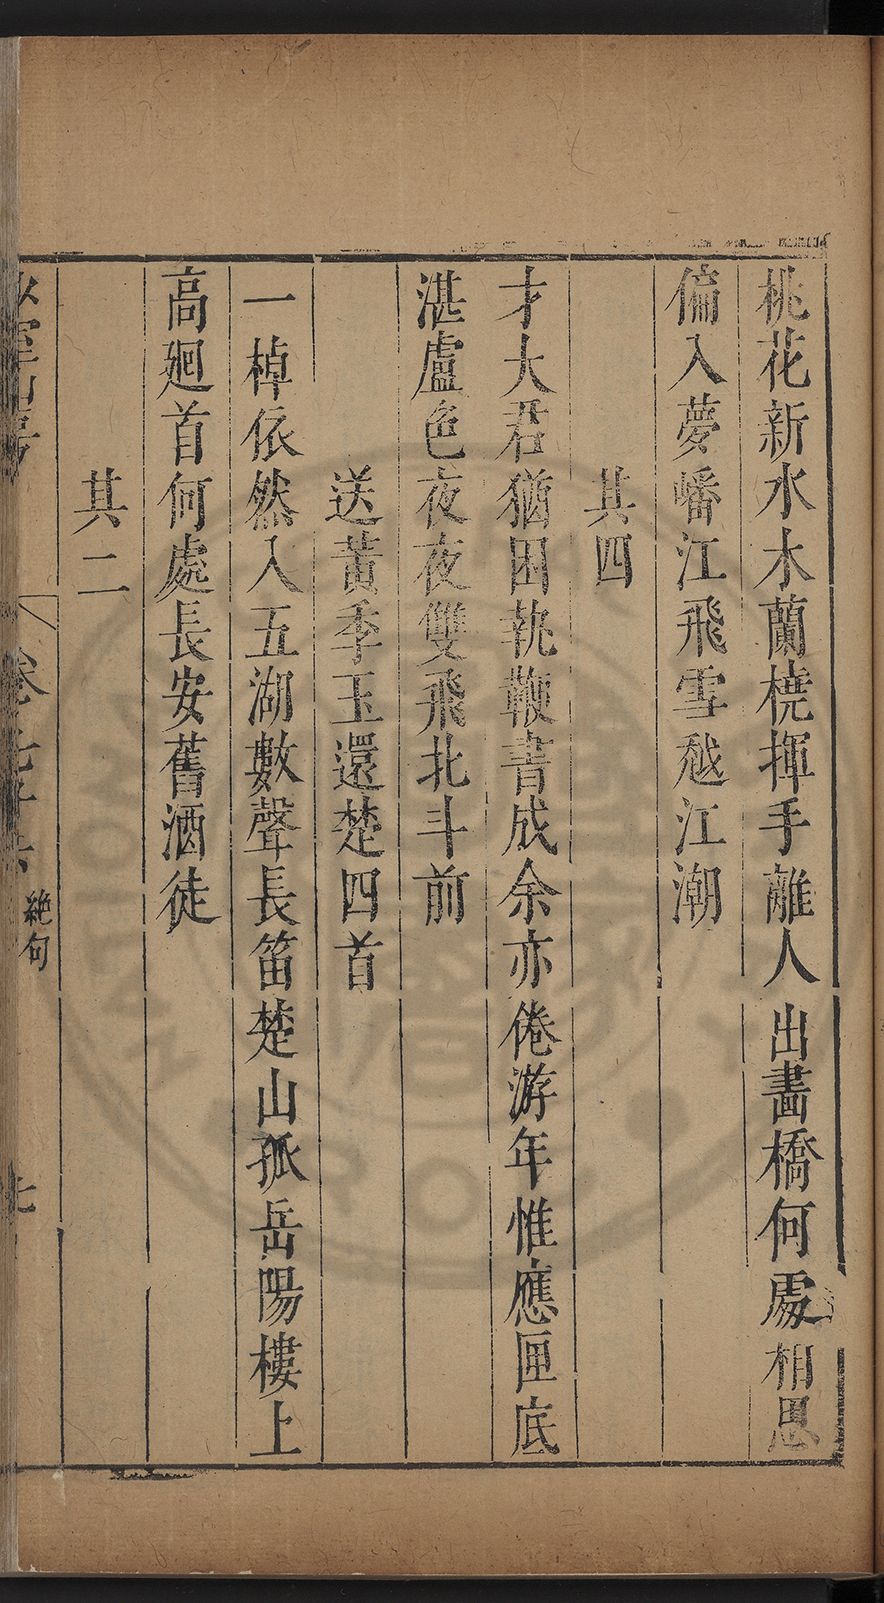 桃花新水木蘭橈揮手離人出畫橋何處相思
偏入夢嶓江飛雪越江潮
其四
才大君猶困執鞭書成余亦倦游年惟應匣底
湛盧色夜夜雙飛北斗前
送黃季玉還楚四首
一棹依然入五湖數聲長笛楚山孤岳陽樓上
高廻首何處長安舊酒徒
其二
絶句